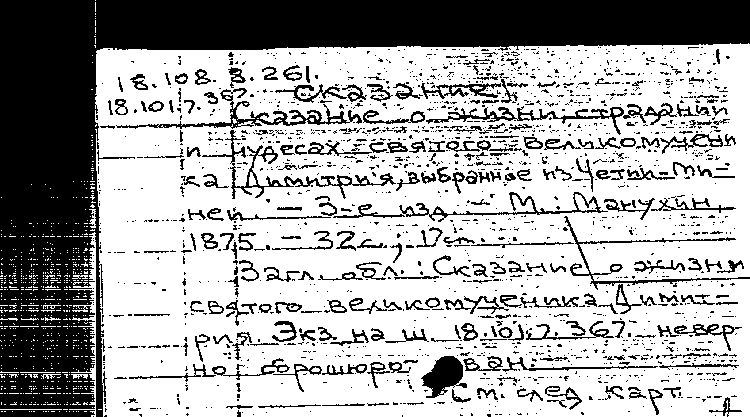 1.
18.108.8.261.
18.101.7.367. Сказание
Сказание о жизни, страдании
и чудесах святого великомучени
ка Димитрия, выбранное из Четии-Ми-
неи. – 3-е изд. – М.: Манухин,
1875. – 32с.; 17см.
Загл. обл.: Сказание о жизни
святого великомученика Димит-
рия. Экз. на ш. 18.101.7.367. невер-
но сброшюро- ван.
См. след. карт.